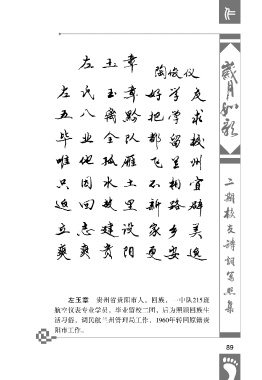 左玉章 陶俊仪
左氏玉章好学友
五八离黔把学求
毕业全队都留校
唯他孤雁飞兰州
只因水土不相宜
返回故里新路辟
立志建设家乡美
爽爽贵阳更安逸
左玉章 贵州省贵阳市人。回族，一中队215班
航空仪表专业学员。毕业留校二团，后为照顾回族生
活习俗，调民航兰州管理局工作，1960年转回原籍贵
阳市工作。
歲月如歌
二期校友诗词写照集
89